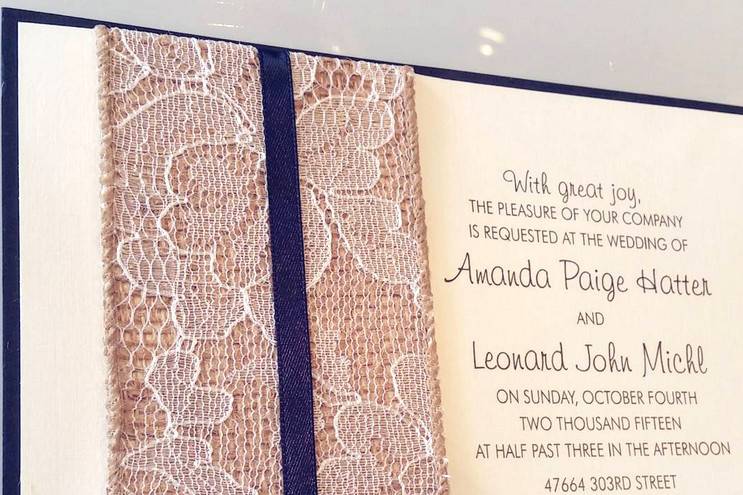 With great joy,
THE PLEASURE OF YOUR COMPANY
IS REQUESTED AT THE WEDDING OF
Amanda Paige Hatter
AND
Leonard John Michl
ON SUNDAY, OCTOBER FOURTH
TWO THOUSAND FIFTEEN
AT HALF PAST THREE IN THE AFTERNOON
47664 303RD STREET